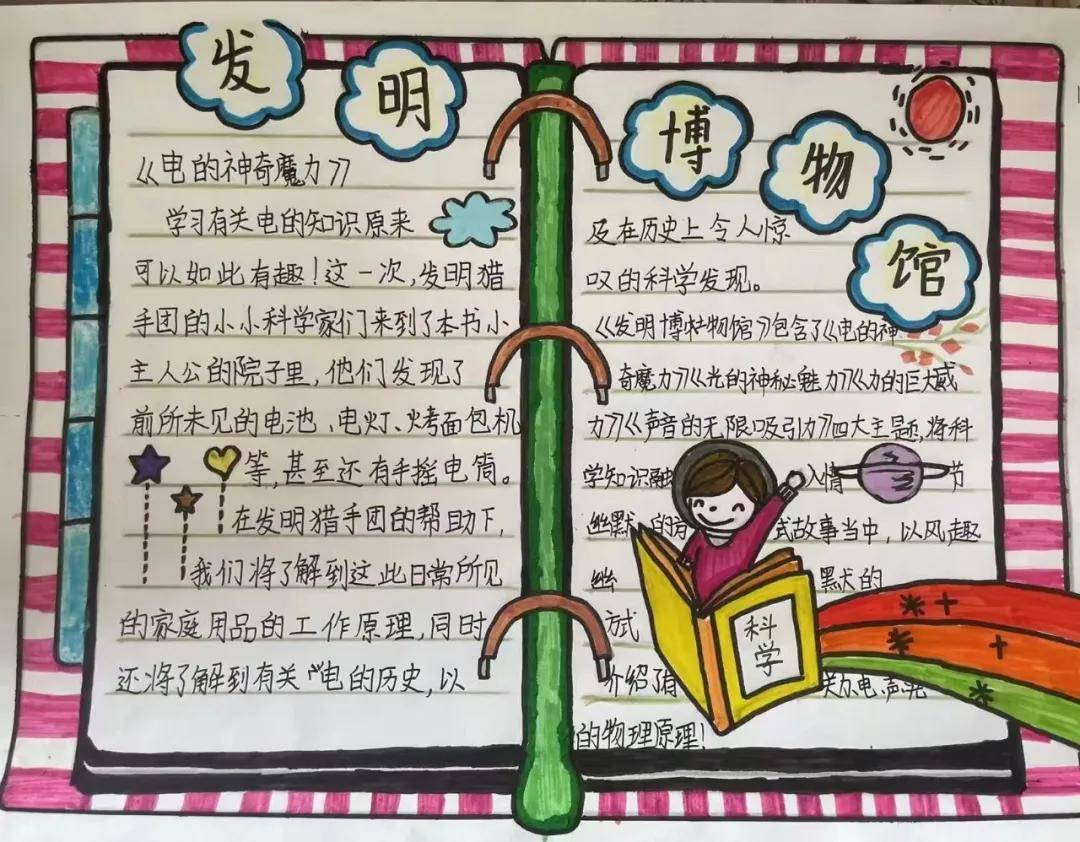 发明博物馆
《电的神奇魔力》
学习有关电的知识原来
可以如此有趣！这一次，发明猎
手团的小小科学家们来到了本书小
主人公的院子里，他们发现了
前所未见的电池、电灯、烤面包机
等，甚至还有手摇电筒。
在发明猎手团的帮助下，
我们将了解到这此日常所见
的家庭用品的工作原理，同时
还将了解到有关“电的历史，以
及在历史上令人惊
叹的科学发现。
《发明博物馆》包含了《电的神
奇魔力》《光的神秘魅力》《力的巨大威
力》《声音的无限吸引力》四大主题，将科
学知识融 入情 节
幽默 的 式故事当中，以风趣
幽 默的
方式
介绍了有 关力、电、声、光
的物理原理！
科
学